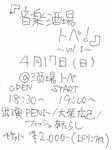 『音楽酒場
トペ!』
〜vol.1〜
4月17日(日)
@酒場トペ
OPEN START
18:30〜 19:00〜
出演 PENI〜/大柴広己/
フレッシュあたらし
チケット ¥2,000-(1ドリンク付)